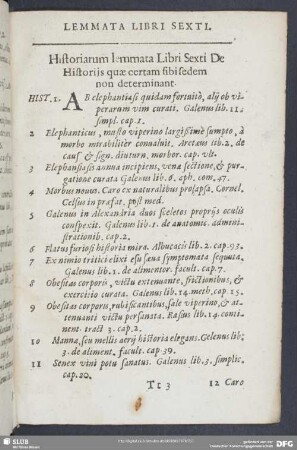 LEMMATA LIBRI SEXTI.
Historiarum lemmata Libri Sexti De
Historijs quæ certam sibi sedem
non determinant.
HIST. 1. AB elephantiasi quidam fortuitò, alij ob vi-
perarum vim curati. Galenus lib. 11.
simpl. cap. 1.
2 Elephanticus, musto viperino largissimè sumpto, à
morbo mirabiliter conualuit. Aretæus lib. 2. de
caus & sign. diuturn. morbor. cap. vlt.
3 Elephansiasis aunua incipiens, venæ sectione, & pur-
gatione curata Galenus lib. 6. aph. com. 47.
4 Morbus nouus. Caro ex naturalibus prolapsa. Cornel.
Celsus in præfat. post med.
5 Galenus in Alexandria duos sceletos proprijs oculis
conspexit. Galenus lib. 1. de anatomic. admini-
strationib. cap. 2.
6 Flatus furiosi historia mira. Albucacis lib. 2. cap. 93.
7 Ex nimio tritici elixi esu sæua symptomata sequuta.
Galenus lib. 1. de alimentor. facult. cap. 7.
8 Obesitas corporis, victu extenuante, frictionibus, &
exercitio curata. Galenus lib. 14. meth. cap. 15.
9 Obesitas corporis, rubificantibus, sale viperino, & at-
tenuanti victu persanata. Rasius lib. 14. conti-
nent. tract 3. cap. 2.
10 Mannæ, seu mellis aerij historia elegans. Galenus lib.
3. de aliment. facult. cap. 39.
11 Senex vini potu sanatus. Galenus lib. 3. simplic.
cap. 20.
Tt 3
12 Caro
SLUB
DFG